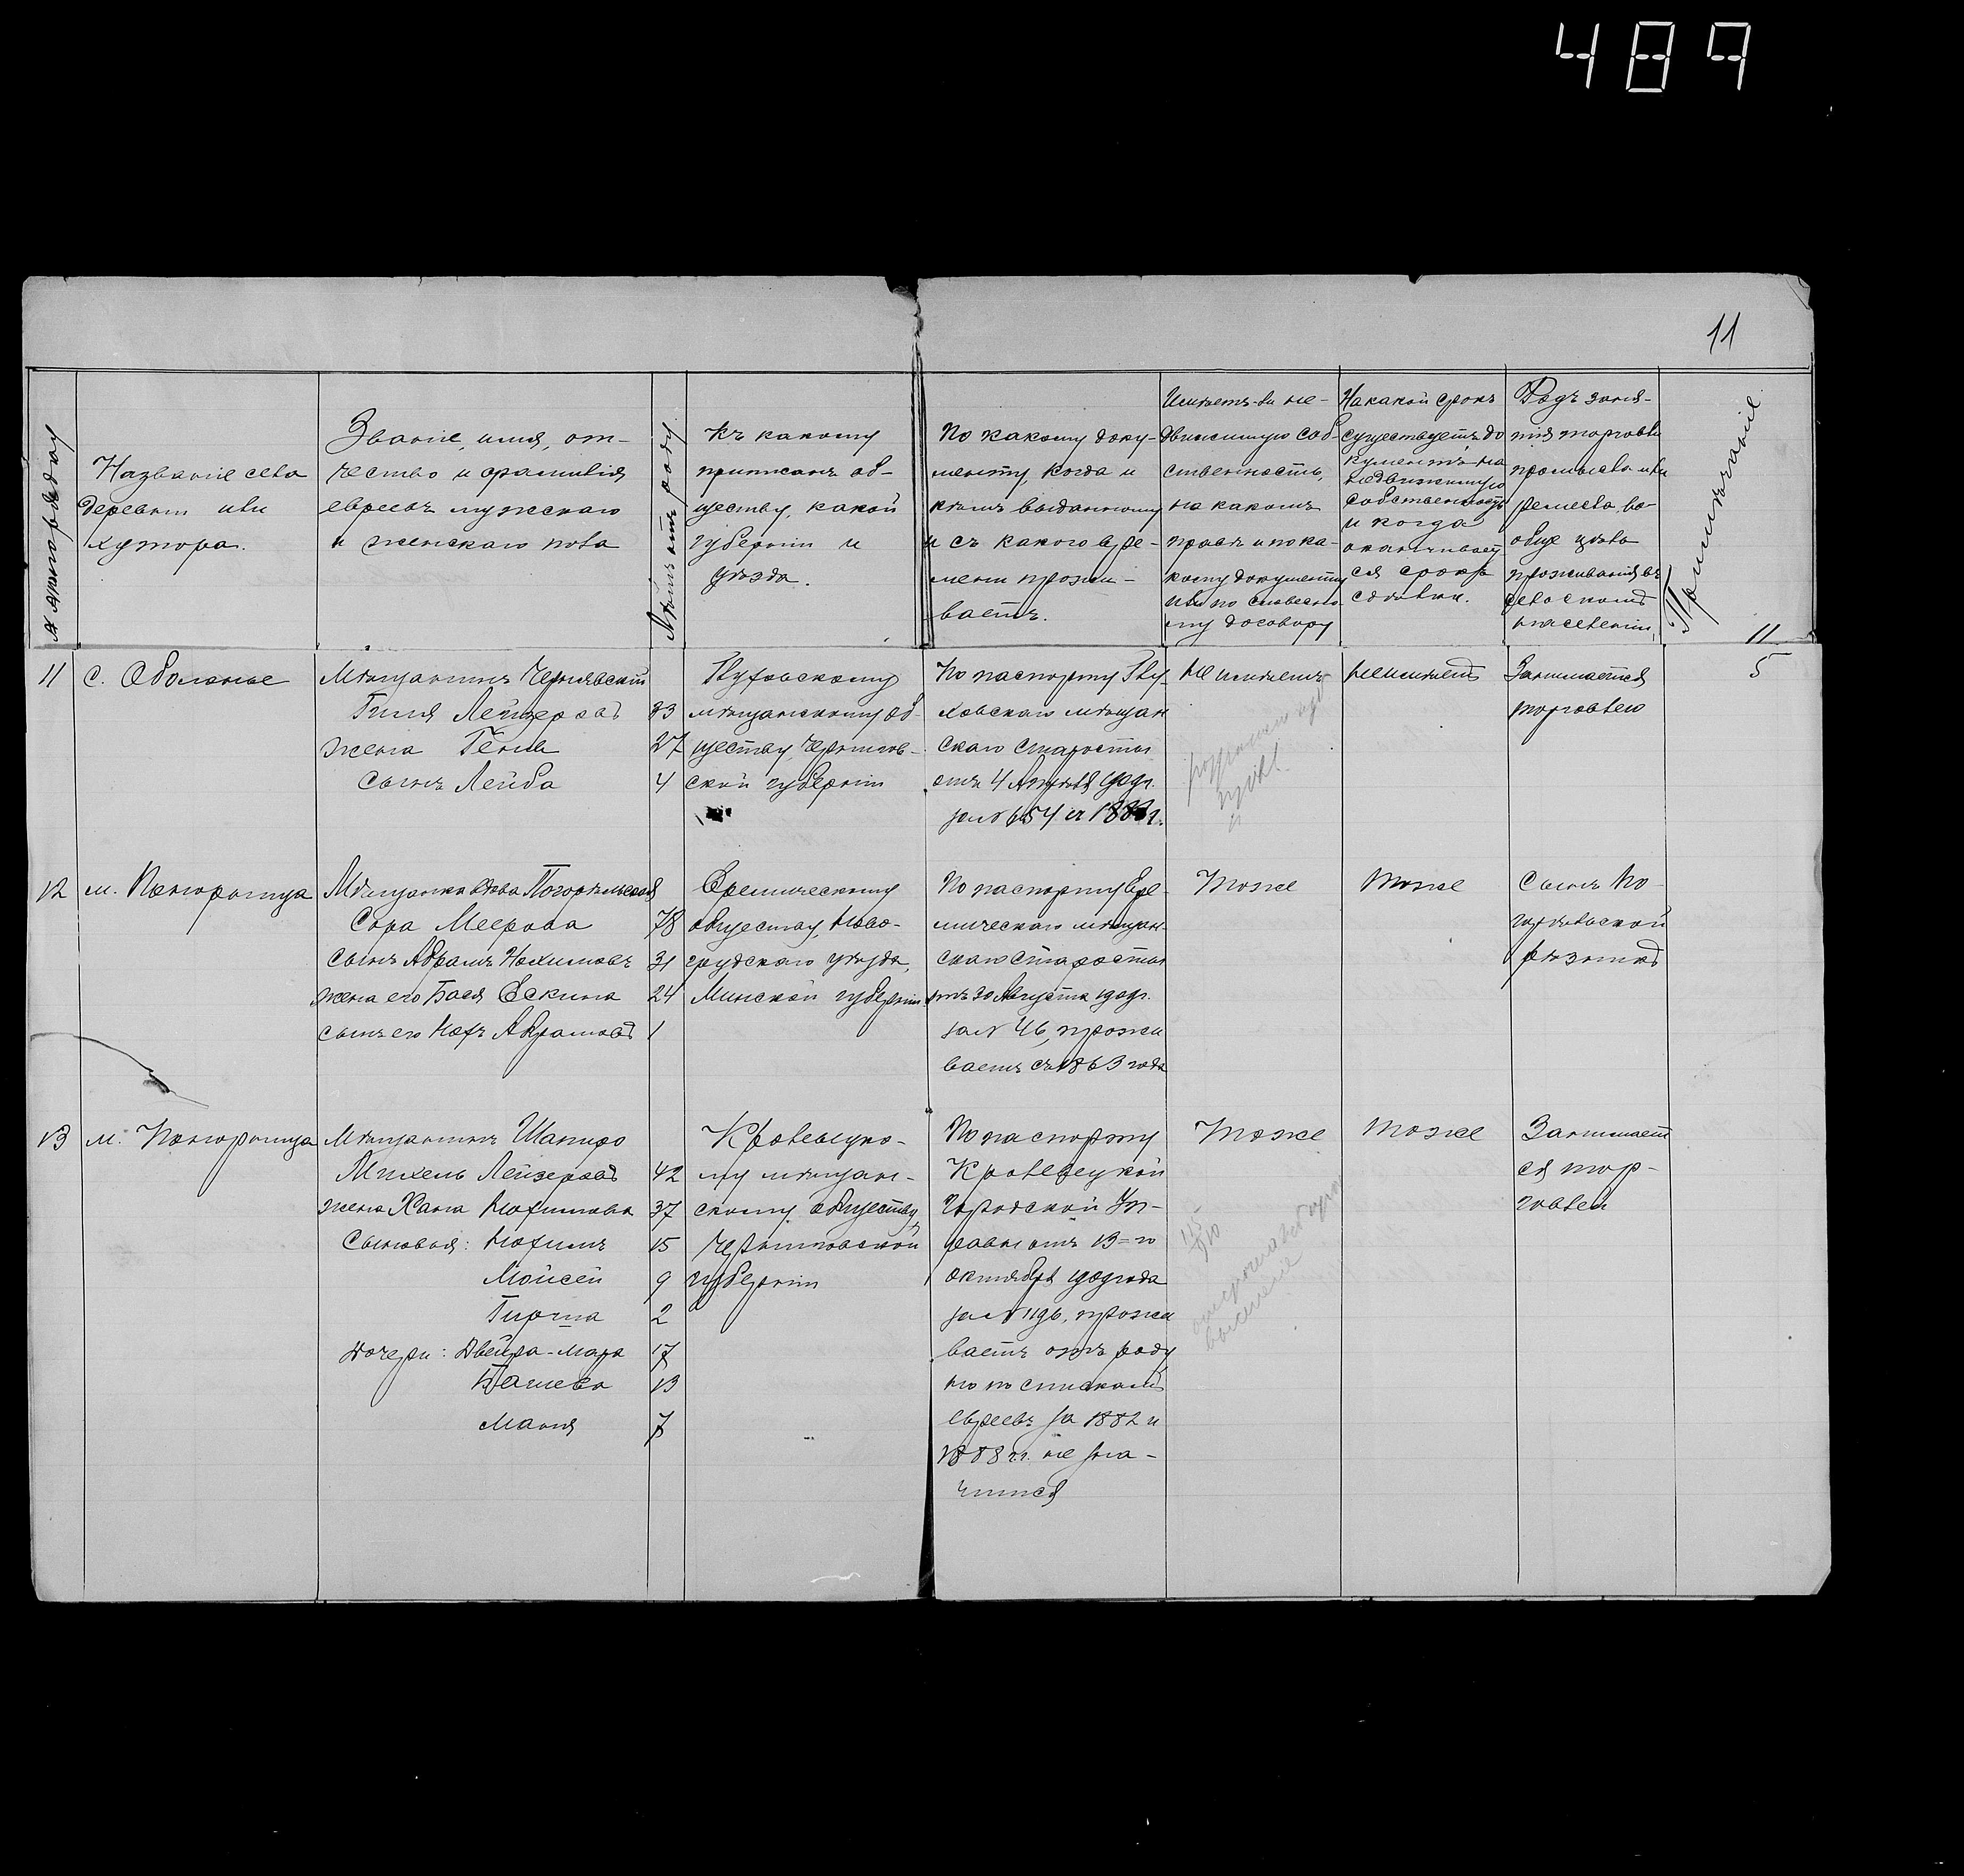 489
11
№ по порядку
Названіе села
деревни или
хутора.
Званіе, имя, от-
чество и фамилія
евреевъ мужскаго
и женскаго пола
Лѣтъ отъ роду
Къ какому
приписанъ об-
ществу, какой
губерніи и
уѣзда.
По какому доку-
менту, когда и
кѣмъ выданному
и съ какого вре-
мени прожи-
ваетъ.
Имѣетъ-ли не-
движимую соб-
ственность,
на какомъ
правѣ и по ка-
кому документу
или по словесно-
му договору
На какой срокъ
существуетъ до
кументъ на
недвижимую
собственность
и когда
оканчивает
ся срокъ
сдѣлки.
Родъ заня-
тія торговли
промысла или
ремесла во-
обще цѣль
проживанія въ
сельскомъ
населеніи.
Примѣчаніе
11
11
с. Оболонье
Мѣщанинъ Чернявскій
Гиля Лейзеровъ 33
жена Геня 27
сынъ Лейба 4
Глуховскому
мѣщанскому об-
ществу, Чернигов-
ской губерніи
По паспорту Глу-
ховскаго мѣщан
скаго старосты
отъ 4 Апрѣля 1909г.
за № 654 съ 188 г.
Не имѣетъ
Не имѣетъ
Занимается
торговлею
5
12
м. Понорница
Мѣщанка вдова Погорѣльская
Сора Меерова 78
сынъ Абрамъ Нохимовъ 31
жена его Бася Ескина 24
сынъ его Нохъ Абрамовъ 1
Еремическому
обществу, Ново-
грудскаго уѣзда,
Минской губерніи
По паспорту Ере-
мическаго мѣщан-
скаго старосты
отъ 30 Августа 1909г.
за № 46, прожи
ваетъ съ 1863 года
Тоже
Тоже
Сынъ По-
горѣльской
рѣзникъ
13
м. Понорница
Мѣщанинъ Шапиро
Михель Лейзеровъ 42
жена Хана Нохимова 37
Сыновья: Нохимъ 15
Мойсей 9
Гирша 2
дочери: Двейра-Мара 17
Башева 13
Маня 7
Кролевецко-
му мѣщан-
скому обществу,
Черниговской
губерніи
По паспорту
Кролевецкой
Городской Уп-
равы отъ 13-го
октября 1909 года
за № 1196, прожи
ваетъ отъ роду
но по спискамъ
евреевъ за 1882 и
1888 г.г. не зна-
чится
Тоже
Тоже
Занимает
ся тор-
говлей